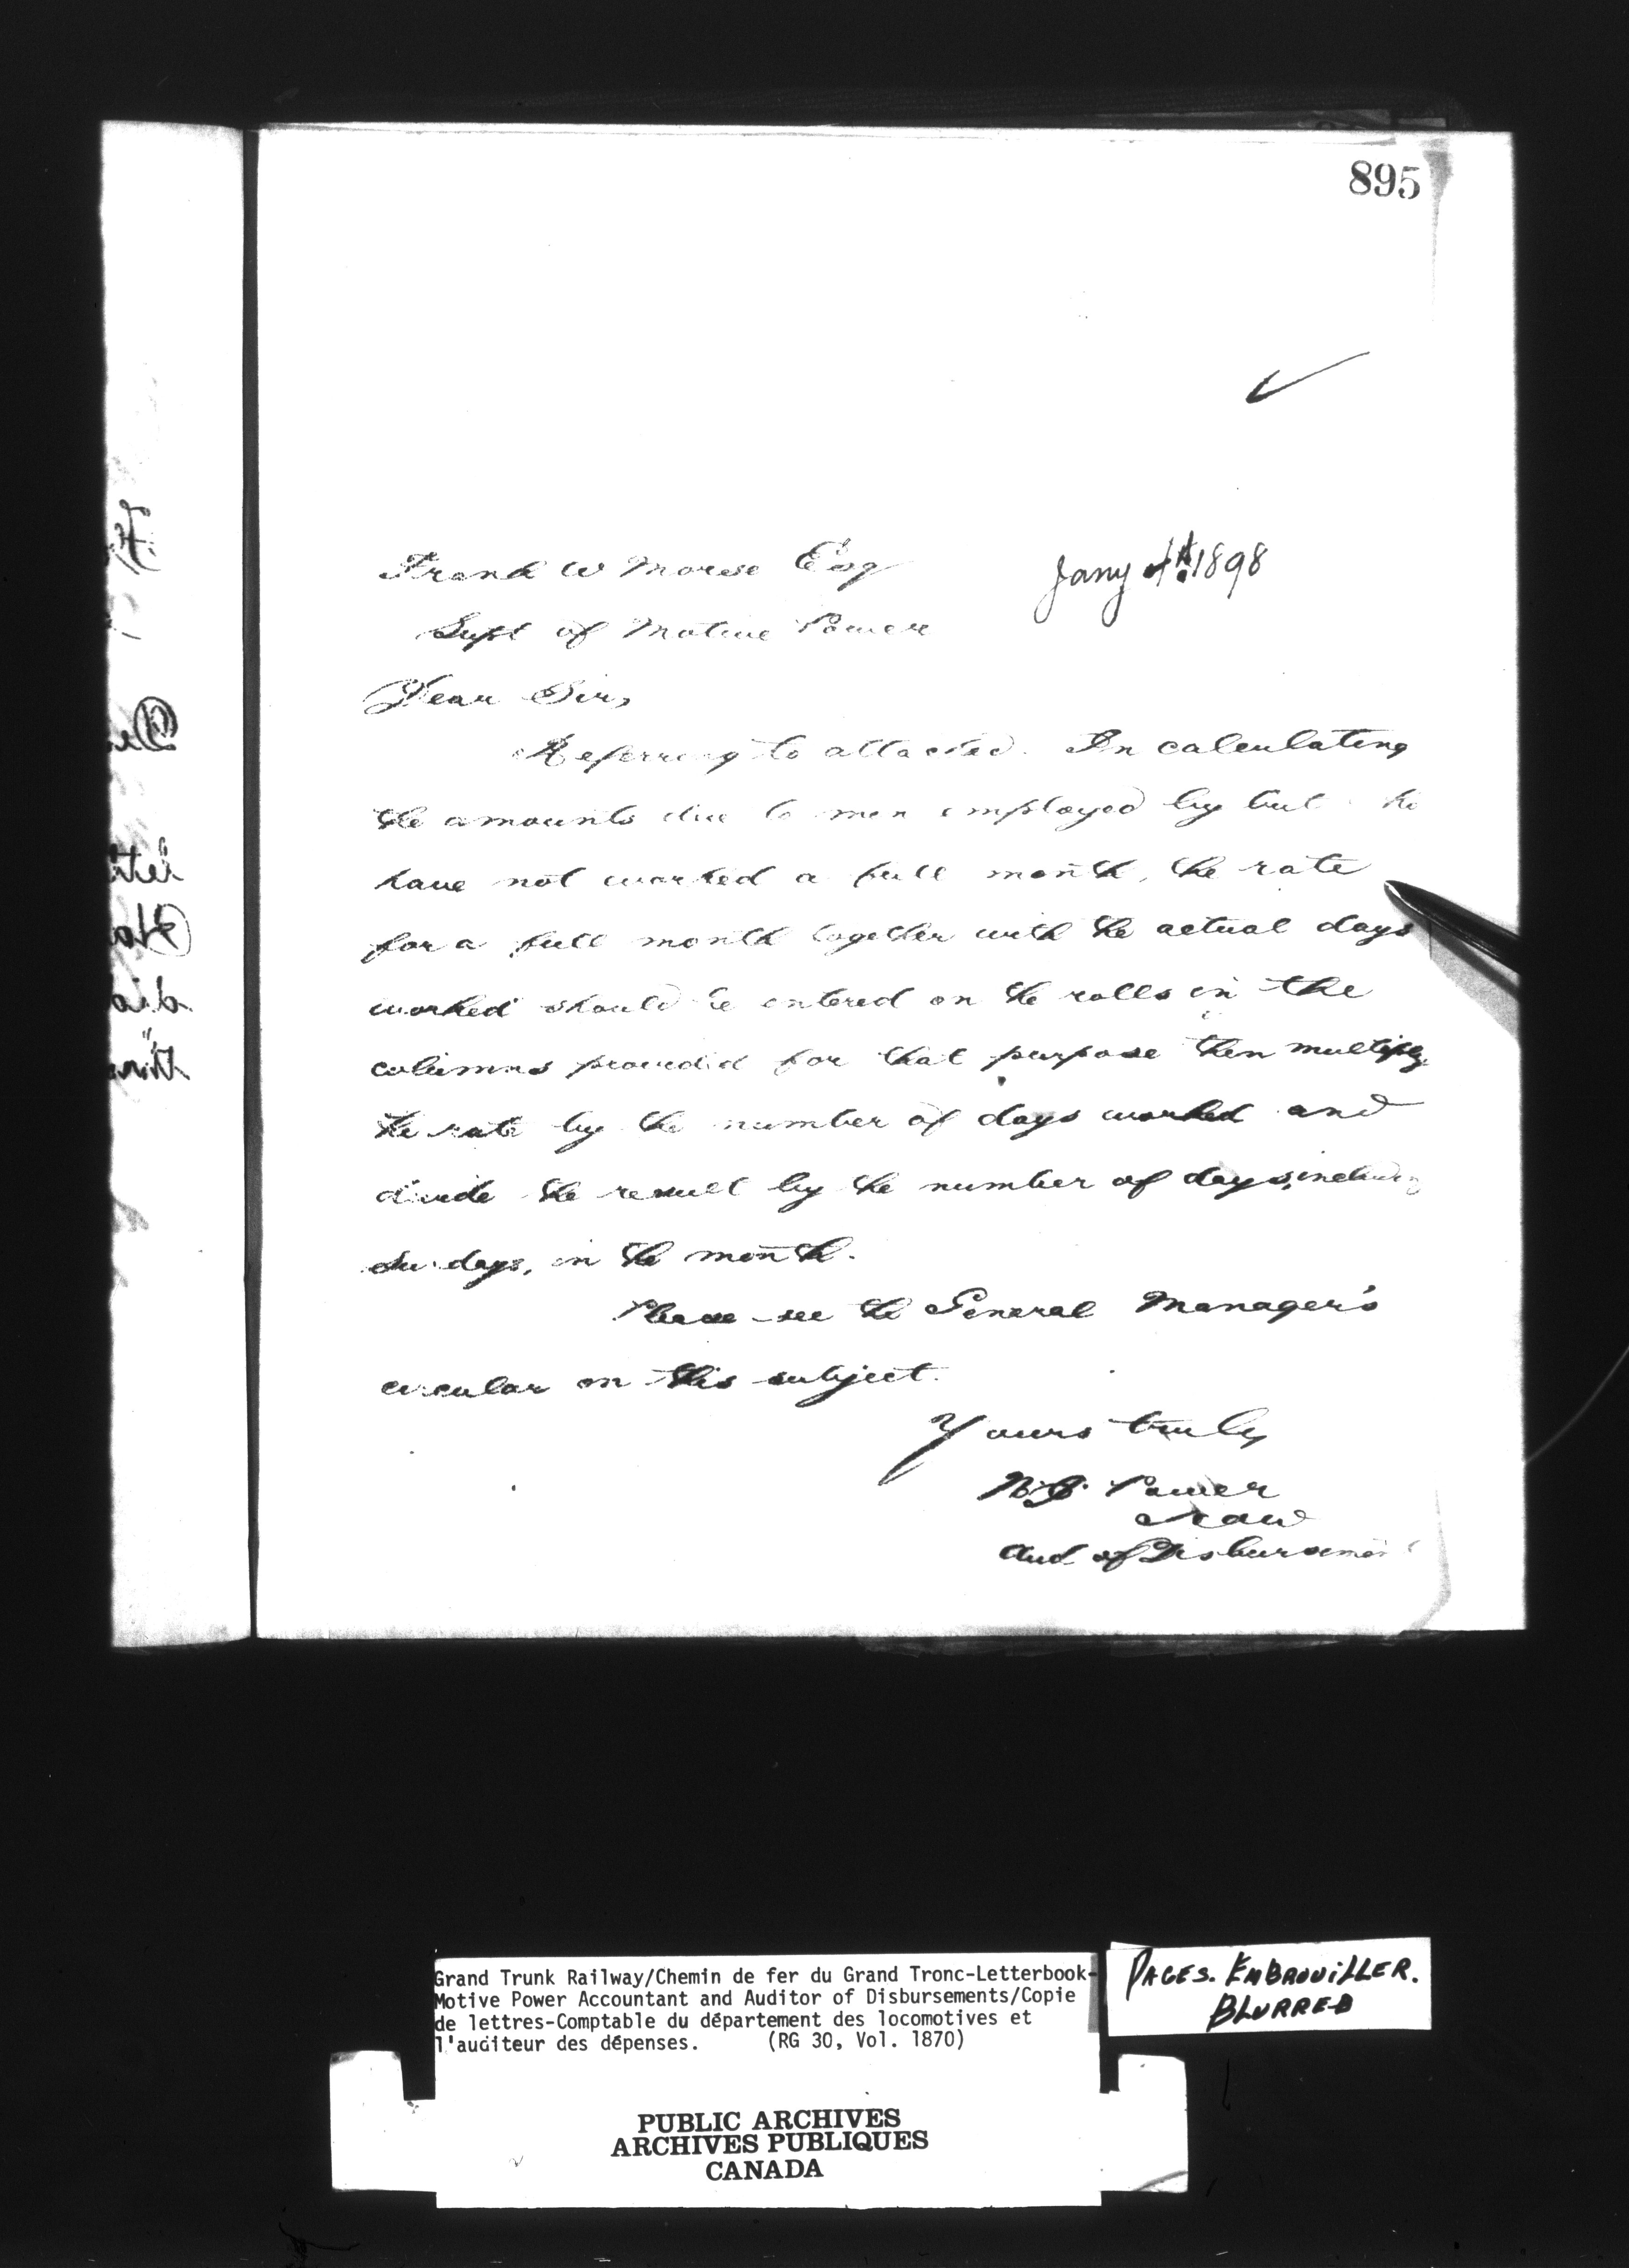 895
Frank W Morse Esq
Jany 4th 1898
Supt of Motive Power
Dear Sir,
Referring to attached. In calculating
the amounts due to men employed by but
have not worked a full month, the rate
for a full month together with the actual days
worked should be entered on the rolls in the
columns provided for that purpose then multiply
the rate by the number of days worked and
divide the result by the number of days, including
Sundays, in the month.
Please see the General Manager's
circular on this subject.
Yours truly
Power
Aud of Disbursements
Grand Trunk Railway/Chemin de fer du Grand Tronc-Letterbook-
Motive Power Accountant and Auditor of Disbursements/Copie
de lettres-Comptable du département des locomotives et
l'auditeur des dépenses. (RG 30, Vol. 1870)
PAGES. EMBROUILLER.
BLURRED
PUBLIC ARCHIVES
ARCHIVES PUBLIQUES
CANADA